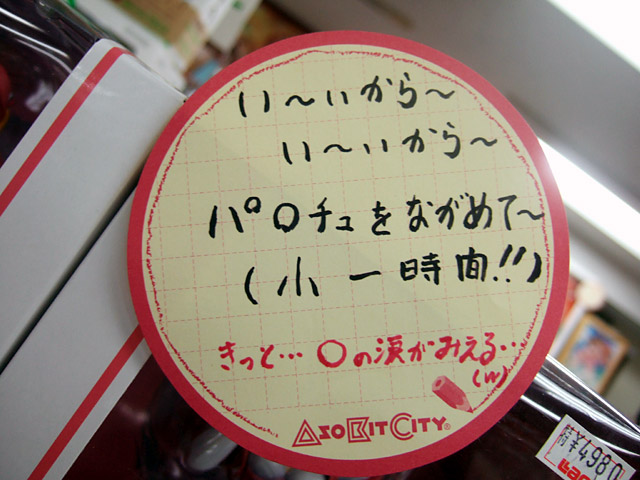 い～いから～
い～いから～
パロチュをながめて～
(小一時間!!)
きっと…○の涙がみえる…
(w)
ASOBITCITY®
¥4,980